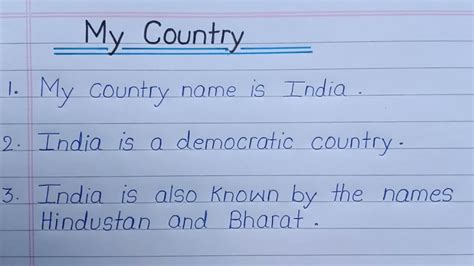 My Country
1. My country name is India.
2. India is a democratic country.
3. India is also known by the names
Hindustan and Bharat.